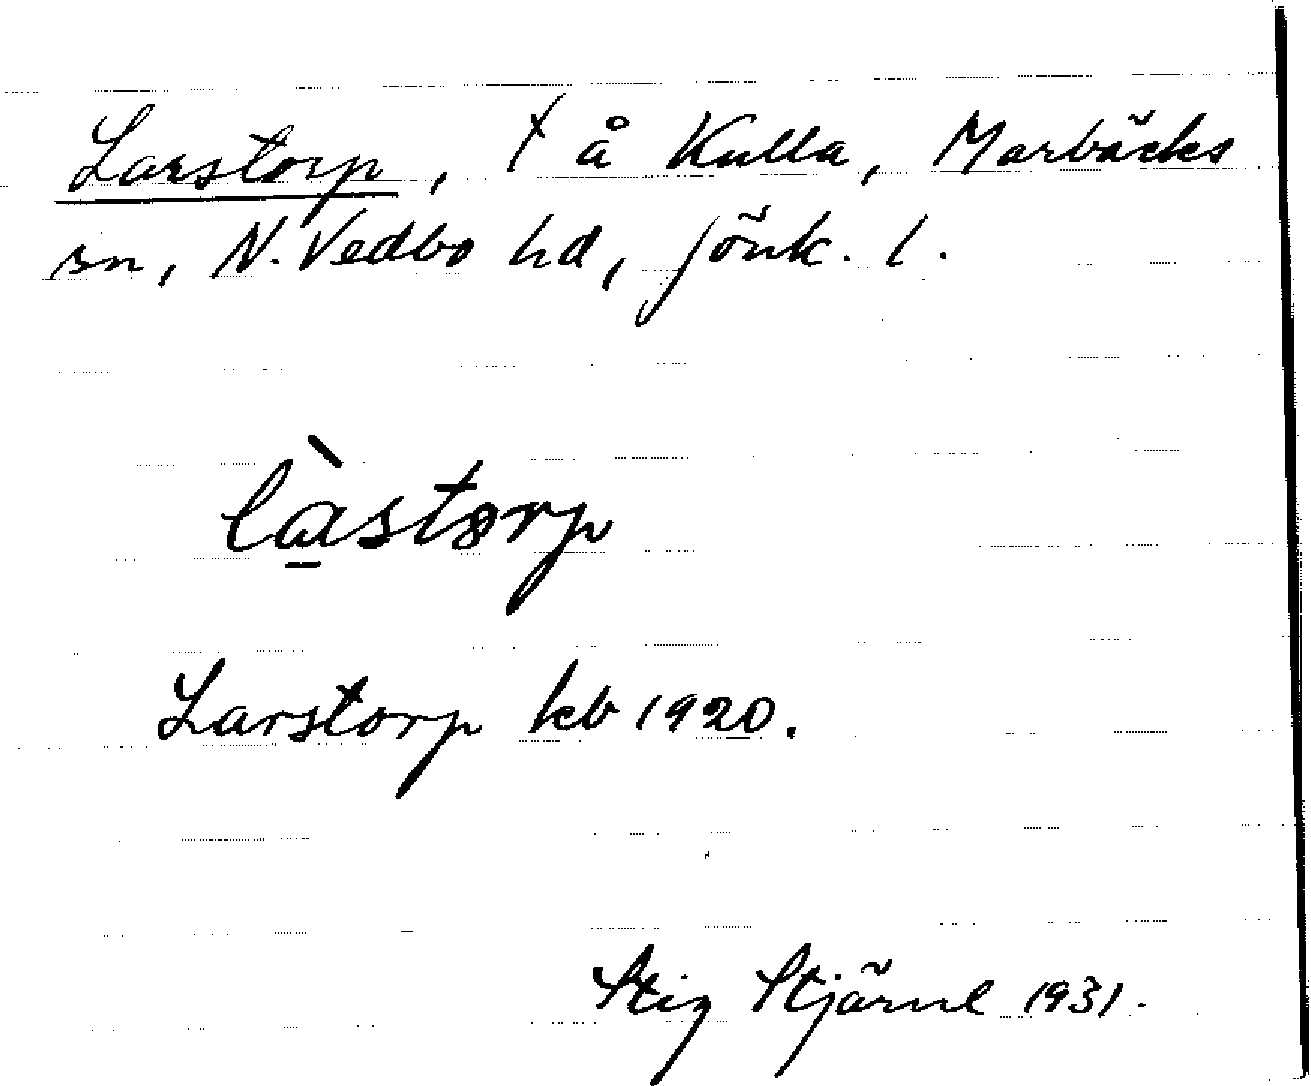 Larstorp, t å Kulla, Marbäcks
sn, N. Vedbo hd, Jönk. l.
làstorp
Larstorp kb 1920.
Stig Stjärne 1931.